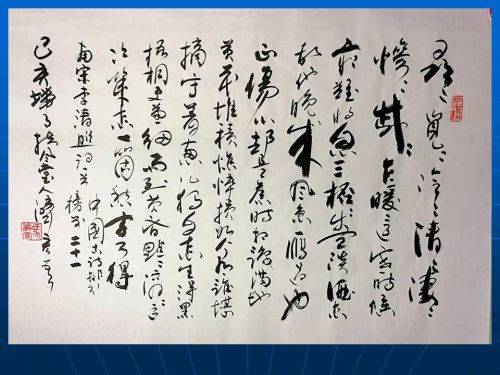 寻〻觅〻冷〻清〻凄〻
惨〻戚〻乍暖还寒时候
最难将息三杯两盏淡酒怎
敌他晚来风急雁过也
正伤心却是旧时相识满地
黄花堆积憔悴损如今有谁堪
摘守着窗儿独自怎生得黑
梧桐更兼细雨到黄昏点〻滴〻这
次第怎一个愁字了得
南宋李清照词
中国诗排行
榜第二十一
己亥